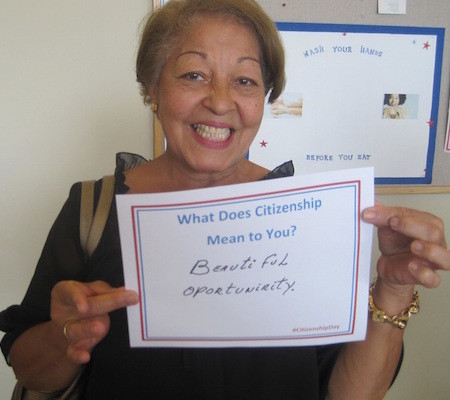 WASH YOUR HANDS
BEFORE YOU EAT
What Does Citizenship
Mean to You?
BEAUTIFUL
OPORTUNIRITY.
#CitizenshipDay